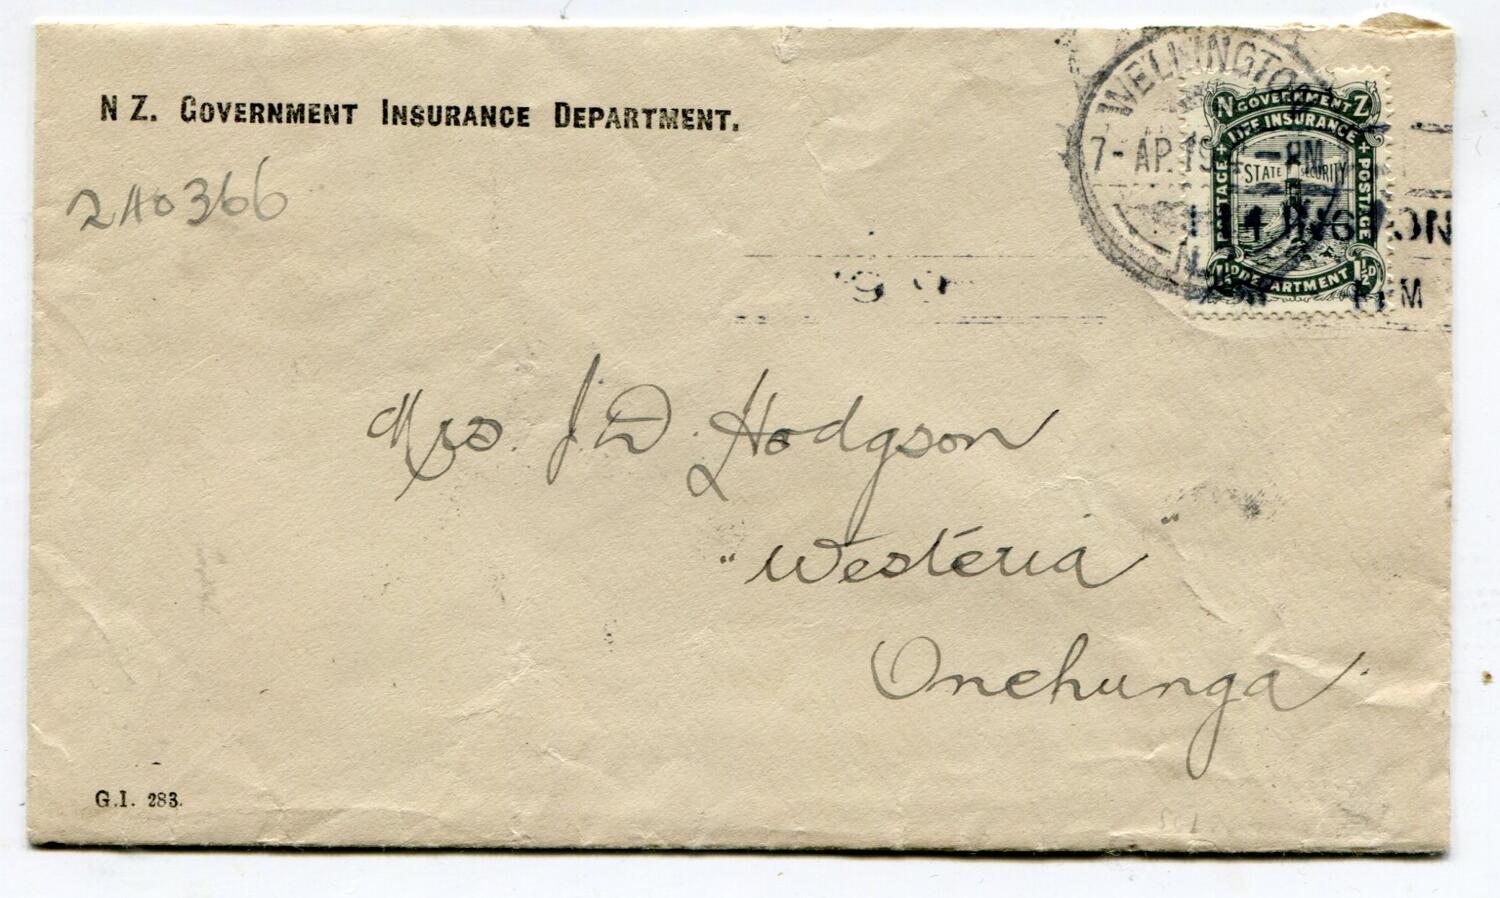 N Z. GOVERNMENT INSURANCE DEPARTMENT.
2A0366
WELLINGTON
7- AP. 19 -PM
N.Z
N GOVERNMENT Z
LIFE INSURANCE
POSTAGE + + POSTAGE
STATE SECURITY
DEPARTMENT 1½D
Mrs. J. D. Hodgson
"Westeria"
Onehunga
G.I. 283.